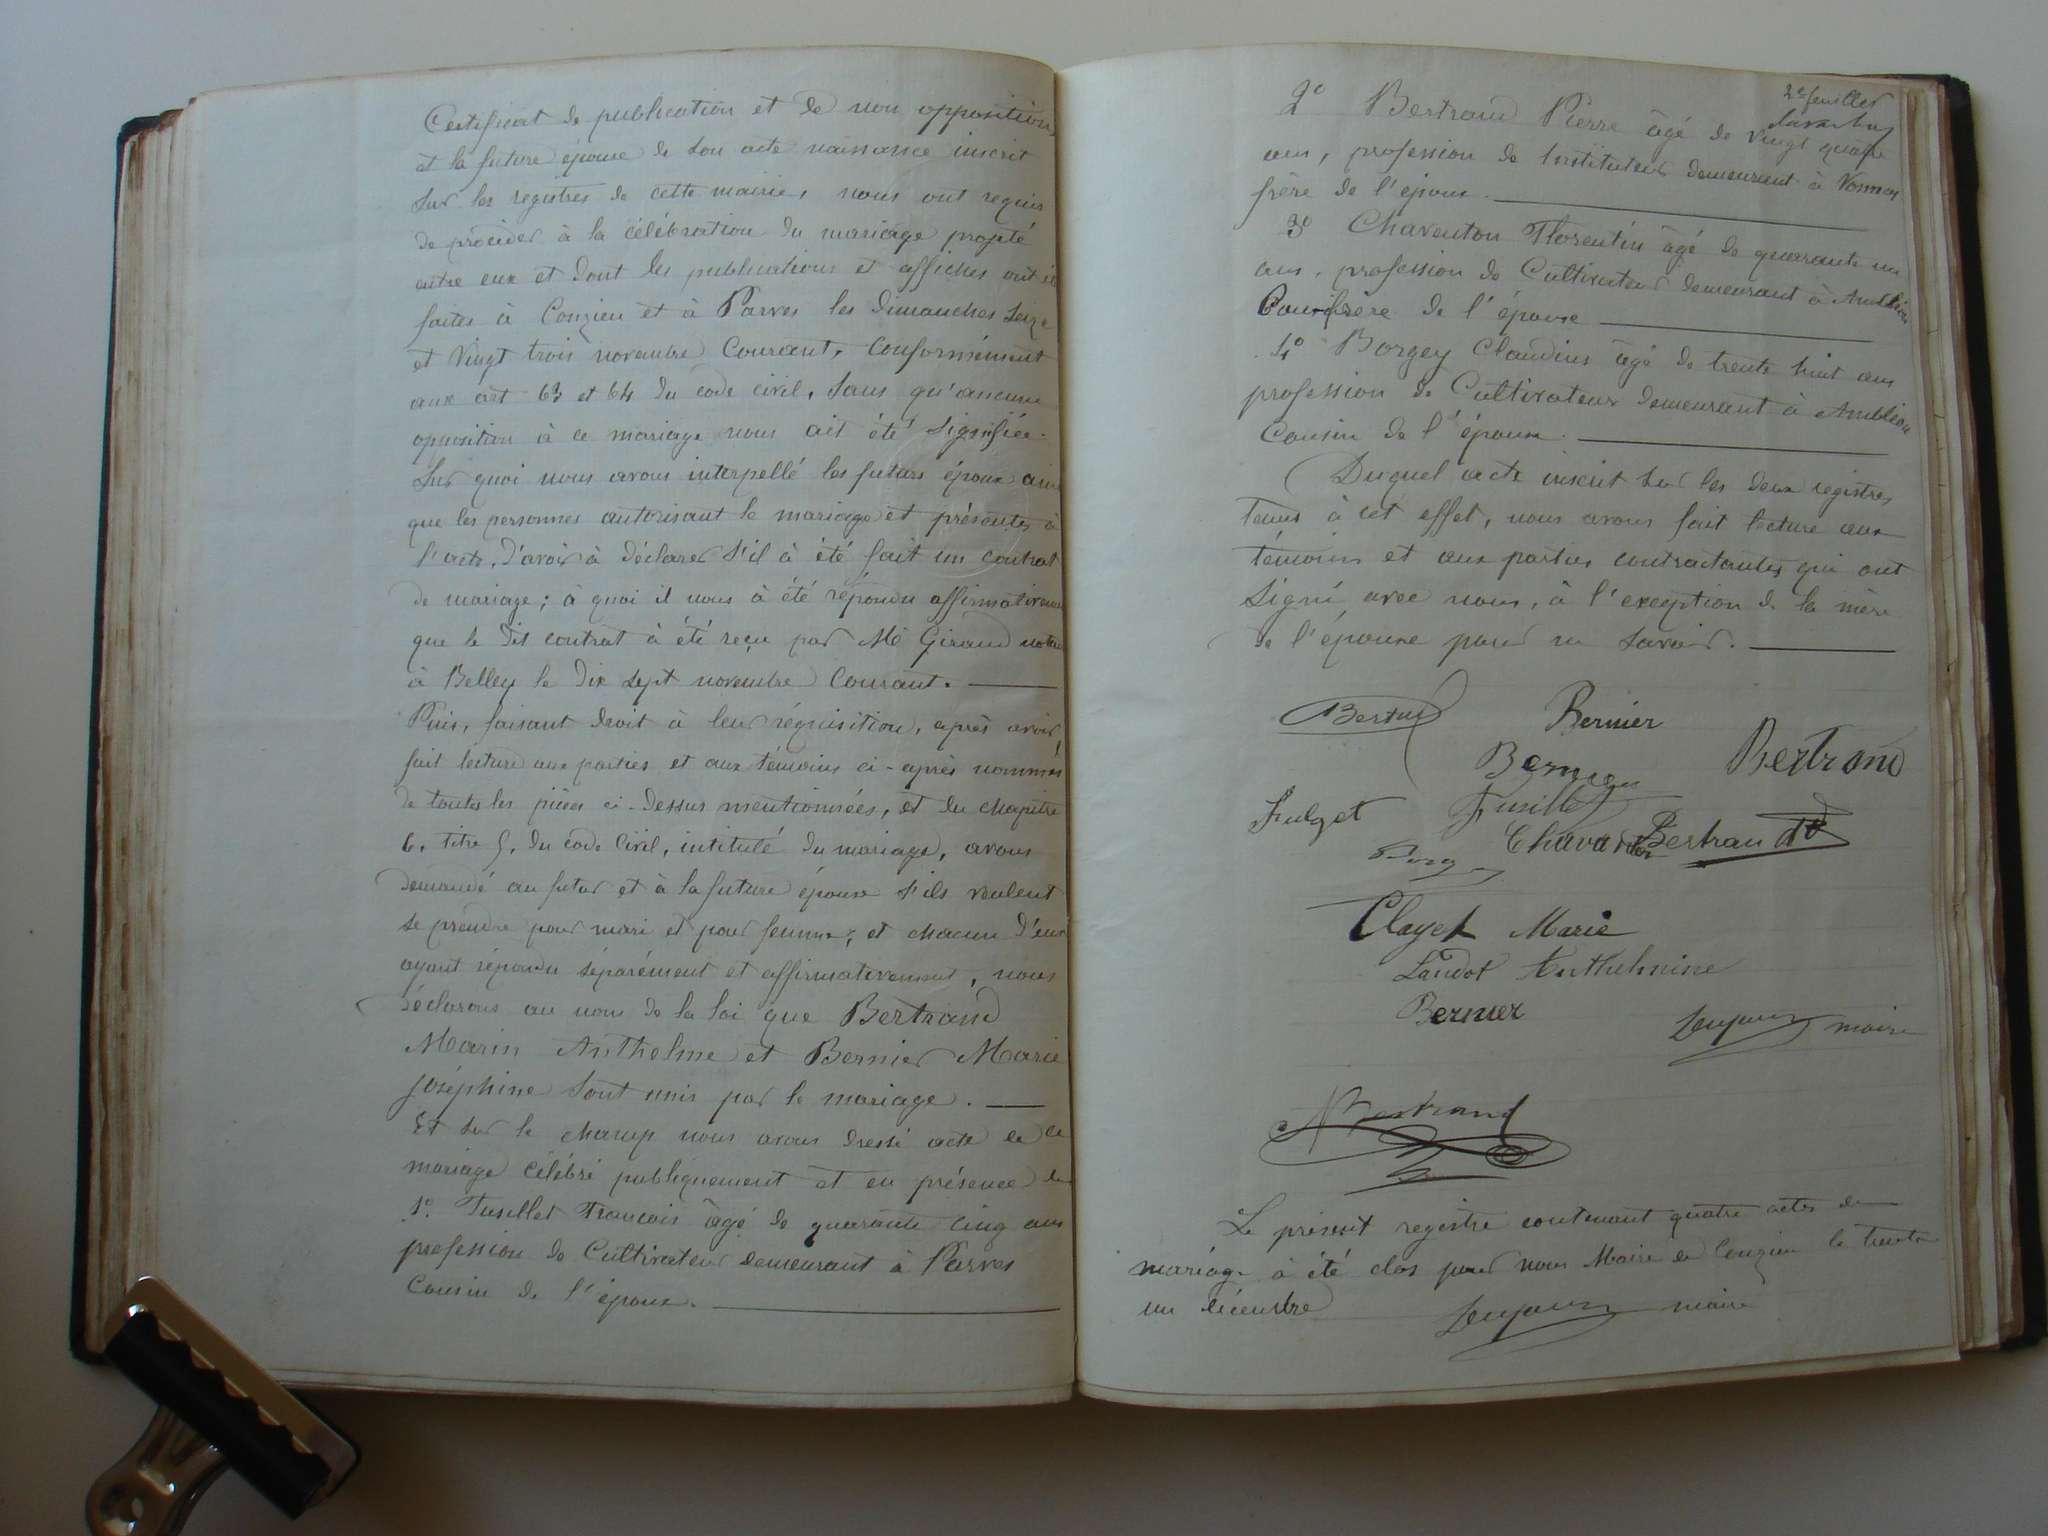 Certificat de publication et de non opposition,
et la future épouse de son acte naissance inscrit
sur les registres de cette mairie, nous ont requis
de procéder à la célébration du mariage projeté
entre eux et dont les publications et affiches ont été
faites à Conzieu et à Parves les dimanches seize
et vingt trois novembre courant, conformément
aux art 63 et 64 du code civil, sans qu'aucune
opposition à ce mariage nous ait été signifiée.
Sur quoi nous avons interpellé les futurs époux ainsi
que les personnes autorisant le mariage et présentes à
l'acte, d'avoir à déclarer s'il à été fait un contrat
de mariage ; à quoi il nous à été répondu affirmativement
que le dit contrat à été reçu par Me Giraud notaire
à Belley le dix sept novembre courant.
Puis, faisant droit à leur réquisition, après avoir
fait lecture aux parties et aux témoins ci-après nommés
de toutes les pièces ci-dessus mentionnées, et du chapitre
6, titre 5, du code civil, intitulé du mariage, avons
demandé au futur et à la future épouse s'ils veulent
se prendre pour mari et pour femme ; et chacun d'eux
ayant répondu séparément et affirmativement, nous
déclarons au nom de la loi que Bertrand
Marin Anthelme et Bernier Marie
Joséphine sont unis par le mariage.
Et sur le champ nous avons dressé acte de ce
mariage célébré publiquement et en présence de
1o. Fusillet François âgé de quarante cinq ans
profession de Cultivateur demeurant à Parves
Cousin de l'époux.
2e feuillet
2o Bertrand Pierre âgé de vingt quatre
ans, profession de Instituteur demeurant à Vonnas
frère de l'époux.
3o Charenton Florentin âgé de quarante un
ans, profession de Cultivateur demeurant à Ambléon
Beau-frère de l'épouse
4o Borgey Claudius âgé de trente huit ans
profession de Cultivateur demeurant à Ambléon
Cousin de l'épouse.
Duquel acte inscrit sur les deux registres
tenus à cet effet, nous avons fait lecture aux
témoins et aux parties contractantes qui ont
signé avec nous, à l'exception de la mère
de l'épouse pour ne savoir.
Bertrand Bernier
Bernier Bertrand
Fulget Fusillet
Bertrand
Clayet Marie
Landot Anthelmine
Bernier maire
Bertrand
Le présent registre contenant quatre actes de
mariage à été clos par nous Maire de Conzieu le trente
un décembre
maire